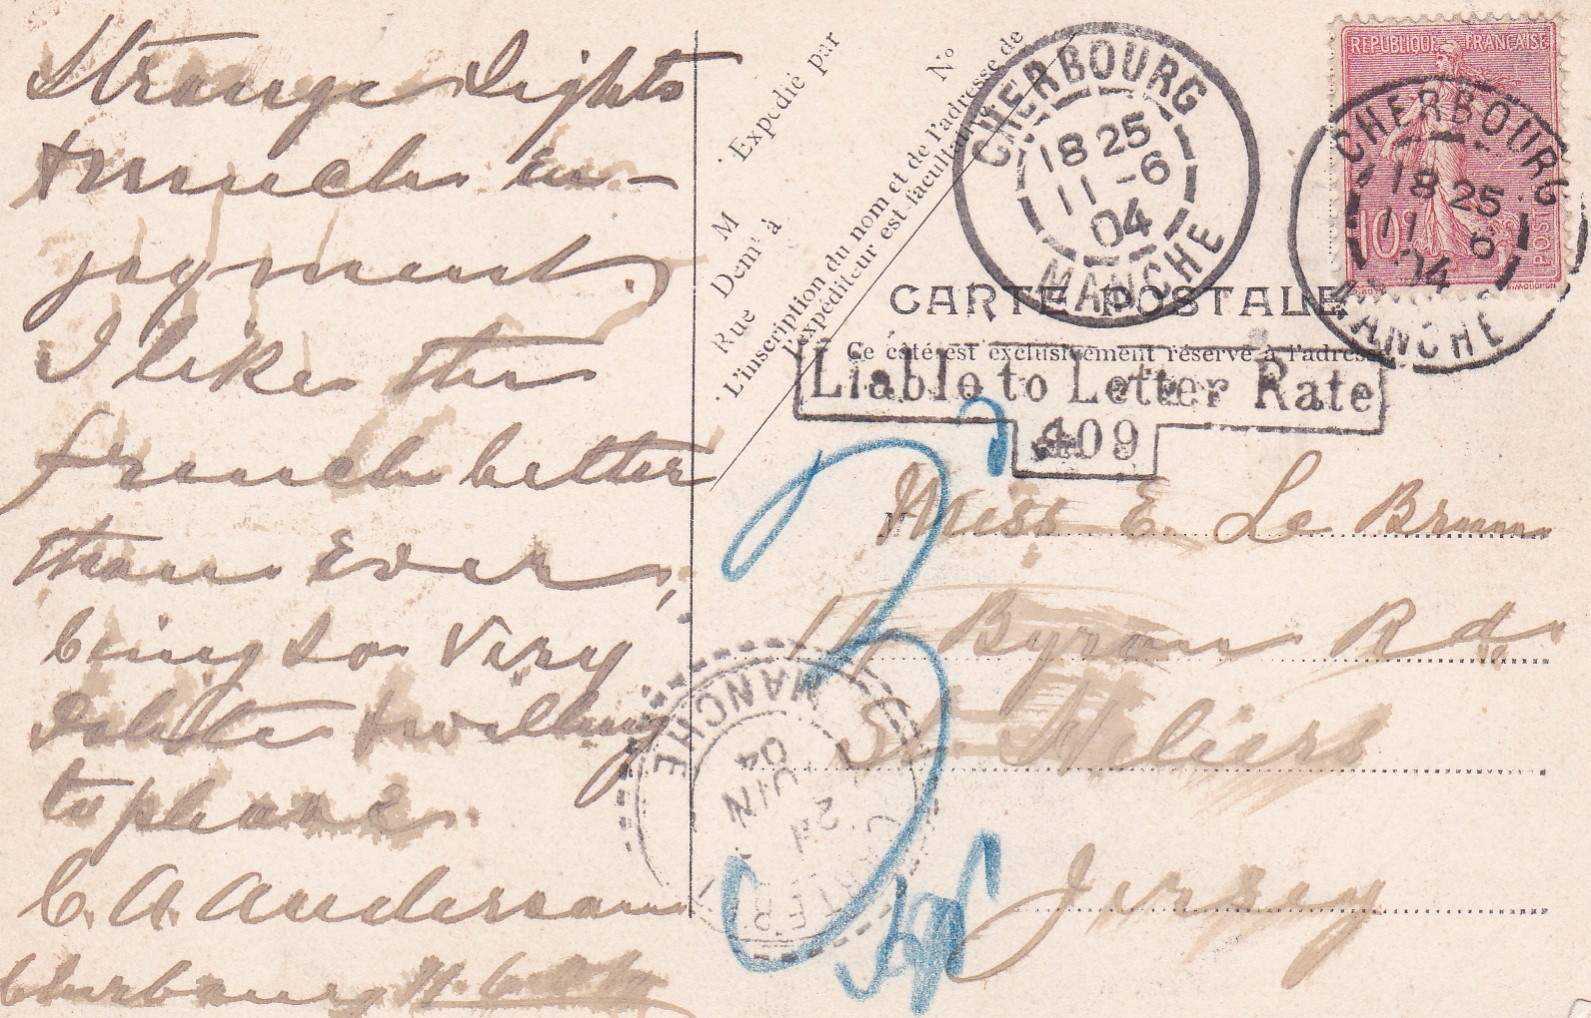 Strange Sights
& much en-
joyment.
I like the
french better
than Ever,
being so very
Polite & willing
to please
C. A. Anderson
Cherbourg
Expédié par
M
Demt à
Rue
No
L'inscription du nom et de l'adresse de
l'expéditeur est facultative
CHERBOURG
18 25
11 -6
04
MANCHE
REPUBLIQUE FRANÇAISE
10
POSTES
CHERBOURG
18 25
11 6
04
MANCHE
CARTE POSTALE
Ce côté est exclusivement réservé à l'adresse
Liable to Letter Rate
409
Miss E. Le Brun
11 Byron Rd.
St. Heliers
Jersey
MANCHE
JUIN
04